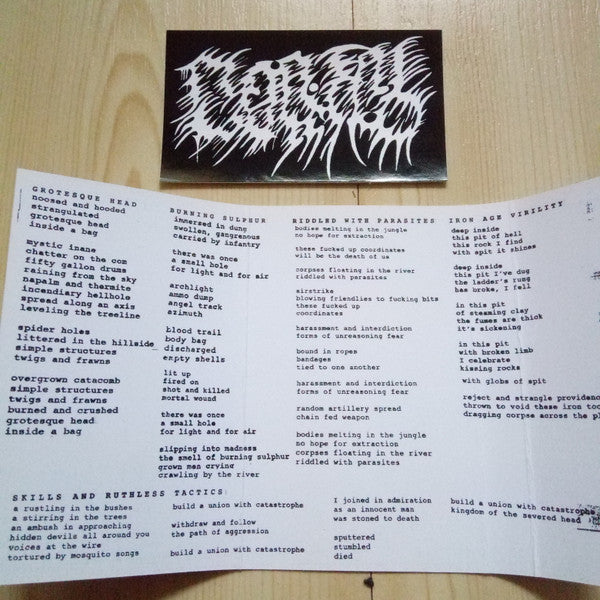 GROTESQUE HEAD
noosed and hooded
strangulated
grotesque head
inside a bag
mystic inane
chatter on the com
fifty gallon drums
raining from the sky
napalm and thermite
incendiary hellhole
spread along an axis
leveling the treeline
spider holes
littered in the hillside
simple structures
twigs and frawns
overgrown catacomb
simple structures
twigs and frawns
burned and crushed
grotesque head
inside a bag
BURNING SULPHUR
immersed in dung
swollen, gangrenous
carried by infantry
there was once
a small hole
for light and for air
archlight
ammo dump
angel track
azimuth
blood trail
body bag
discharged
empty shells
lit up
fired on
shot and killed
mortal wound
there was once
a small hole
for light and for air
slipping into madness
the smell of burning sulphur
grown men crying
crawling by the river
RIDDLED WITH PARASITES
bodies melting in the jungle
no hope for extraction
these fucked up coordinates
will be the death of us
corpses floating in the river
riddled with parasites
airstrike
blowing friendlies to fucking bits
these fucked up
coordinates
harassment and interdiction
forms of unreasoning fear
bound in ropes
bandages
tied to one another
harassment and interdiction
forms of unreasoning fear
random artillery spread
chain fed weapon
bodies melting in the jungle
no hope for extraction
corpses floating in the river
riddled with parasites
IRON AGE VIRILITY
deep inside
this pit of hell
this rock I find
with spit it shines
deep inside
this pit I've dug
the ladder's rung
has broke, I fell
in this pit
of steaming clay
the fumes are thick
it's sickening
in this pit
with broken limb
I celebrate
kissing rocks
with globs of spit
reject and strangle
thrown to void these iron
dragging corpse across the
SKILLS AND RUTHLESS TACTICS
a rustling in the bushes
a stirring in the trees
an ambush in approaching
hidden devils all around you
voices at the wire
tortured by mosquito songs
build a union with catastrophe
withdraw and follow
the path of aggression
build a union with catastrophe
I joined in admiration
as an innocent man
was stoned to death
sputtered
stumbled
died
build a union with catastrophe
kingdom of the severed head